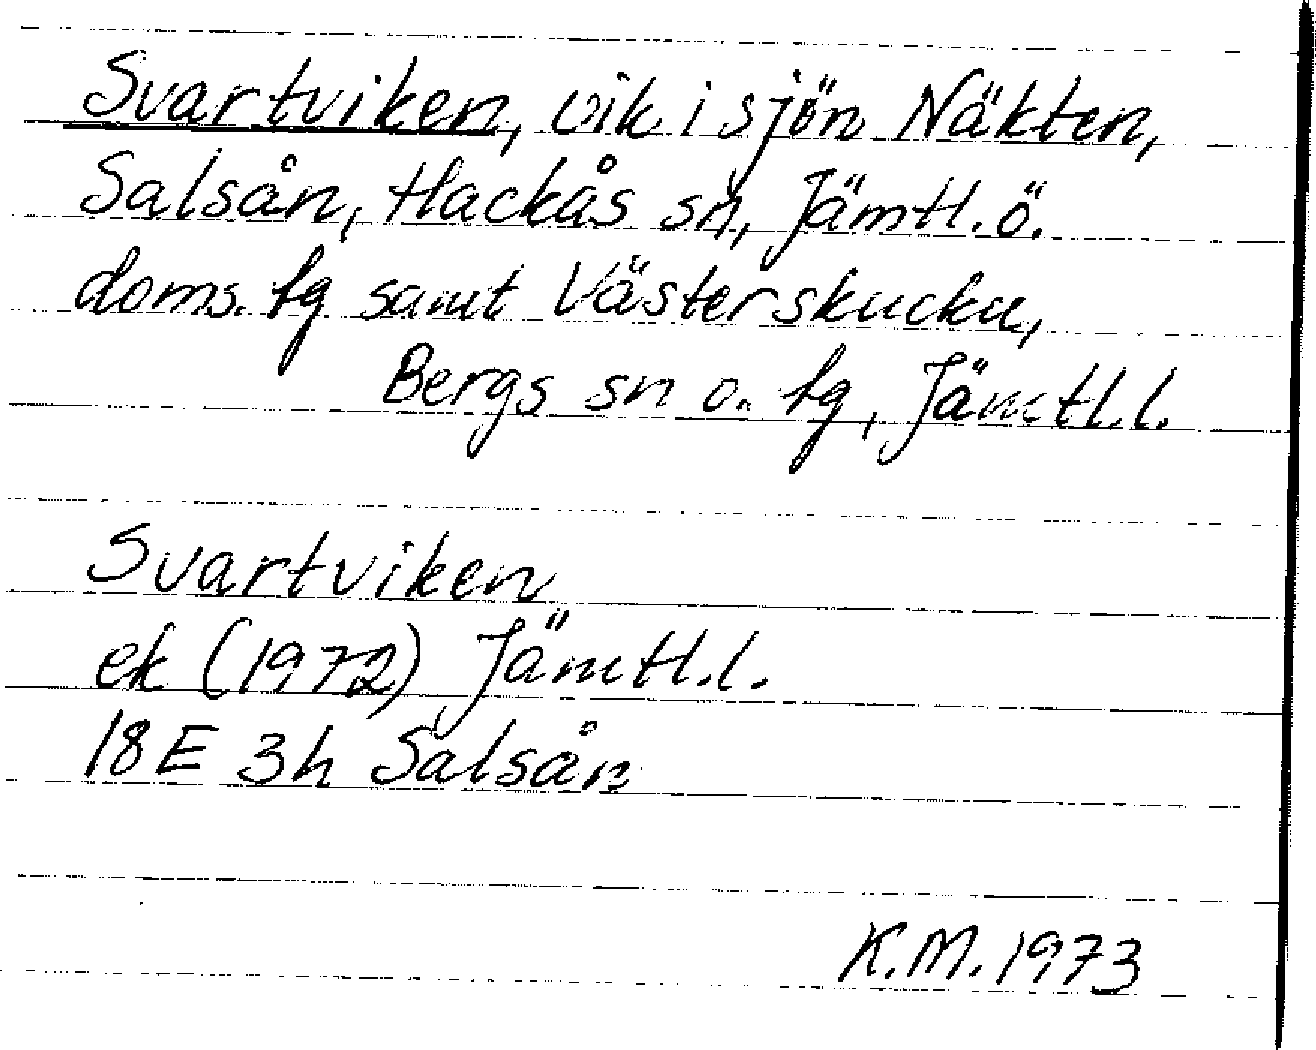 Svartviken, vik i sjön Näkten,
Salsån, Hackås sn, Jämtl. ö.
doms. fg samt Västerskucku,
Bergs sn o. fg, Jämtl. l.
Svartviken
ek (1972) Jämtl. l.
18E 3h Salsån
K.M. 1973